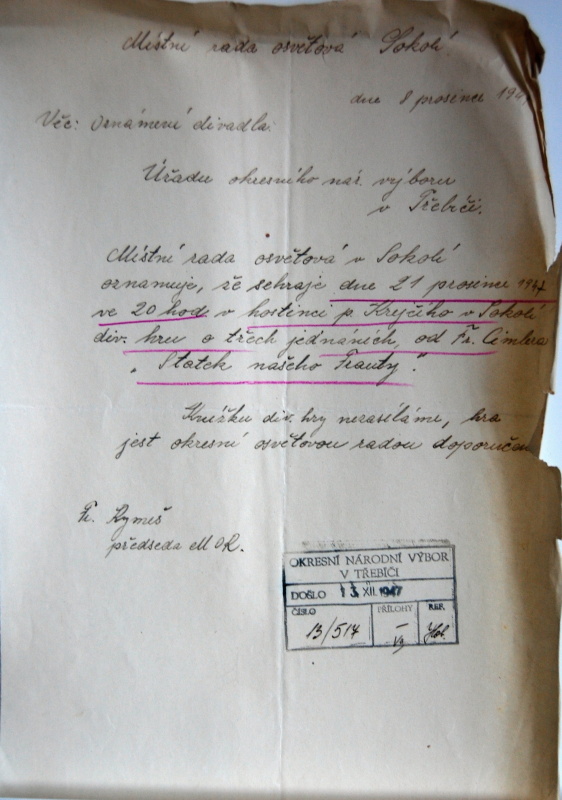 Místní rada osvětová Sokolí.
dne 8 prosince 194
Věc: Oznámení divadla.
Úřadu okresního nár. výboru
v Třebíči.
Místní rada osvětová v Sokolí
oznamuje, že sehraje dne 21 prosince 1947
ve 20 hod v hostinci p. Krejčího v Sokolí
div. hru o třech jednáních, od Fr. Cimlera
"Statek našeho Frauty".
Knížku div. hry nezasíláme, hra
jest okresní osvětovou radou doporučen
Fr. Kymeš
předseda MOR.
OKRESNÍ NÁRODNÍ VÝBOR
V TŘEBÍČI
DOŠLO 13. XII. 1947
ČÍSLO PŘÍLOHY REF.
13/517 –